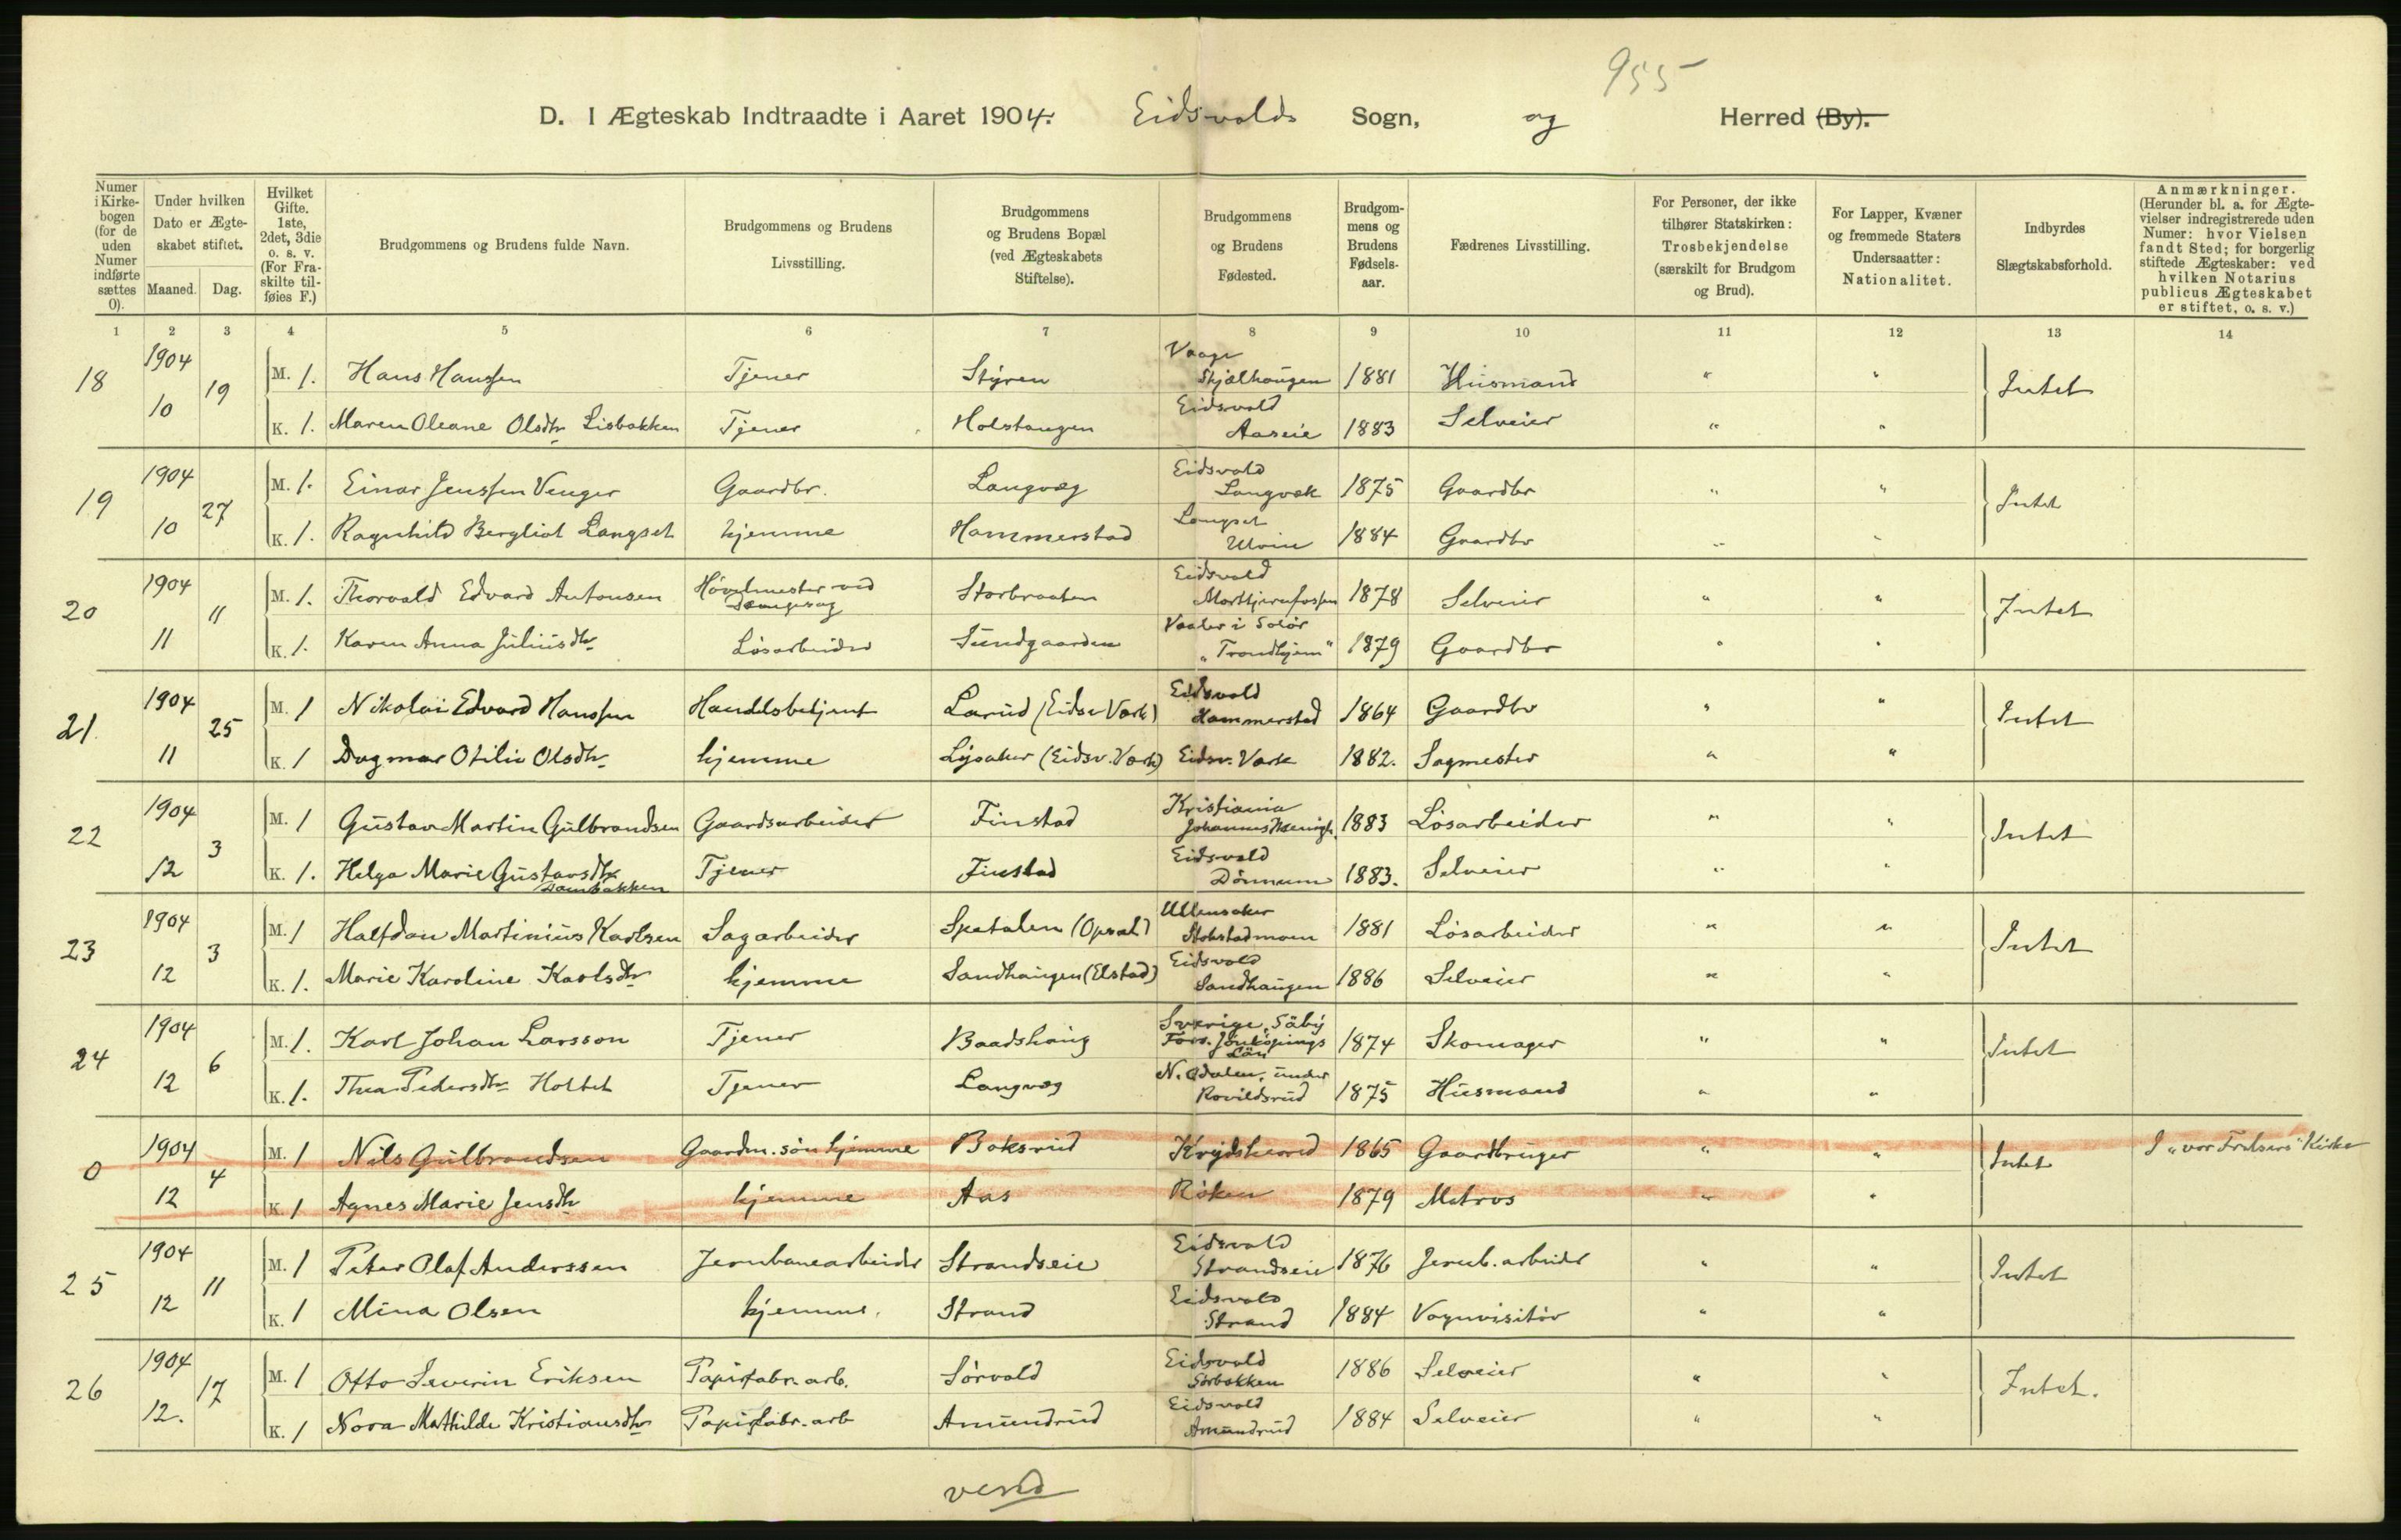 955
D. I Ægteskab Indtraadte i Aaret 1904. Eidsvolds Sogn, og Herred (By).
Numer i Kirkebogen (for de uden Numer indførte sættes 0).
Under hvilken Dato er Ægteskabet stiftet.
Maaned. Dag.
Hvilket Gifte. 1ste, 2det, 3die o. s. v. (For Fraskilte tilføies F.)
Brudgommens og Brudens fulde Navn.
Brudgommens og Brudens Livsstilling.
Brudgommens og Brudens Bopæl (ved Ægteskabets Stiftelse).
Brudgommens og Brudens Fødested.
Brudgommens og Brudens Fødselsaar.
Fædrenes Livsstilling.
For Personer, der ikke tilhører Statskirken: Trosbekjendelse (særskilt for Brudgom og Brud).
For Lapper, Kvæner og fremmede Staters Undersaatter: Nationalitet.
Indbyrdes Slægtskabsforhold.
Anmærkninger. (Herunder bl. a. for Ægtevielser indregistrerede uden Numer: hvor Vielsen fandt Sted; for borgerlig stiftede Ægteskaber: ved hvilken Notarius publicus Ægteskabet er stiftet, o. s. v.)
1 2 3 4 5 6 7 8 9 10 11 12 13 14
18 1904 10 19 M. 1. Hans Hanssen Tjener Styren Vaage Skjælhaugen 1881 Husmand " " Intet
K. 1. Maren Oleane Olsdtr Lisbakken Tjener Holstangen Eidsvold Aaseie 1883 Selveier " "
19 1904 10 27 M. 1. Einar Jenssen Venger Gaardbr. Langvæg Eidsvold Langvæk 1875 Gaardbr " " Intet
K. 1. Ragnhild Bergliot Langset hjemme Hammerstad Langset Ulvin 1884 Gaardbr " "
20 1904 11 11 M. 1. Thorvald Edvard Antonsen Høvelmester ved Storbraaten Eidsvold 1878 Selveier " " Intet
K. 1. Karen Anna Juliusdtr Løsarbeider Sundgaarden Vaaler i Solør "Trondhjem" 1879 Gaardbr " "
21 1904 11 25 M. 1 Nikolai Edvard Hanssen Handelsbetjent Larud (Eidsv Værk) Eidsvold Hammerstad 1864 Gaardbr " " Intet
K. 1 Dagmar Otilie Olsdtr. hjemme Lysaker (Eidsv. Værk) Eidsv. Værk 1882. Sagmester " "
22 1904 12 3 M. 1 Gustav Martin Gulbrandsen Gaardsarbeider Finstad Kristiania Johannes Menigh. 1883 Løsarbeider " " Intet
K. 1. Helga Marie Gustavsdtr Dambakken Tjener Finstad Eidsvold Dønnum 1883. Selveier " "
23 1904 12 3 M. 1 Halfdan Martinius Karlsen Sagarbeider Spetalen (Opsal) Ullensaker Stokstadmoen 1881 Løsarbeider " " Intet
K. 1. Marie Karoline Karlsdtr hjemme Sandhaugen (Elstad) Eidsvold Sandhaugen 1886 Selveier " "
24 1904 12 6 M. 1. Karl Johan Larsson Tjener Baadshaug Sverige, Säby Förs. Jönköpings Län 1874 Skomager " " Intet
K. 1. Thea Pedersdtr Holtet Tjener Langvæg N. Odalen, under Rovildsrud 1875 Husmand " "
0 1904 12 4 M. 1 Nils Gulbrandsen Gaardm. søn hjemme Boksrud Krydsherred 1865 Gaardbruger " " Intet I "vor Frelsers" Kirke
K. 1 Agnes Marie Jensdtr hjemme Aas Røken 1879 Matros " "
25 1904 12 11 M. 1 Peter Olaf Anderssen Jernbanearbeider Strandseie Eidsvold Strandseie 1876 Jernb. arbeider " " Intet
K. 1 Mina Olsen hjemme. Strand Eidsvold Strand 1884 Vognvisitør " "
26 1904 12. 17 M. 1 Otto Severin Eriksen Papirfabr. arb. Sørvold Eidsvold Sørbakken 1886 Selveier " " Intet.
K. 1 Nora Mathilde Kristiansdtr Papirfabr. arb Amundrud Eidsvold Amundrud 1884 Selveier " "
vend